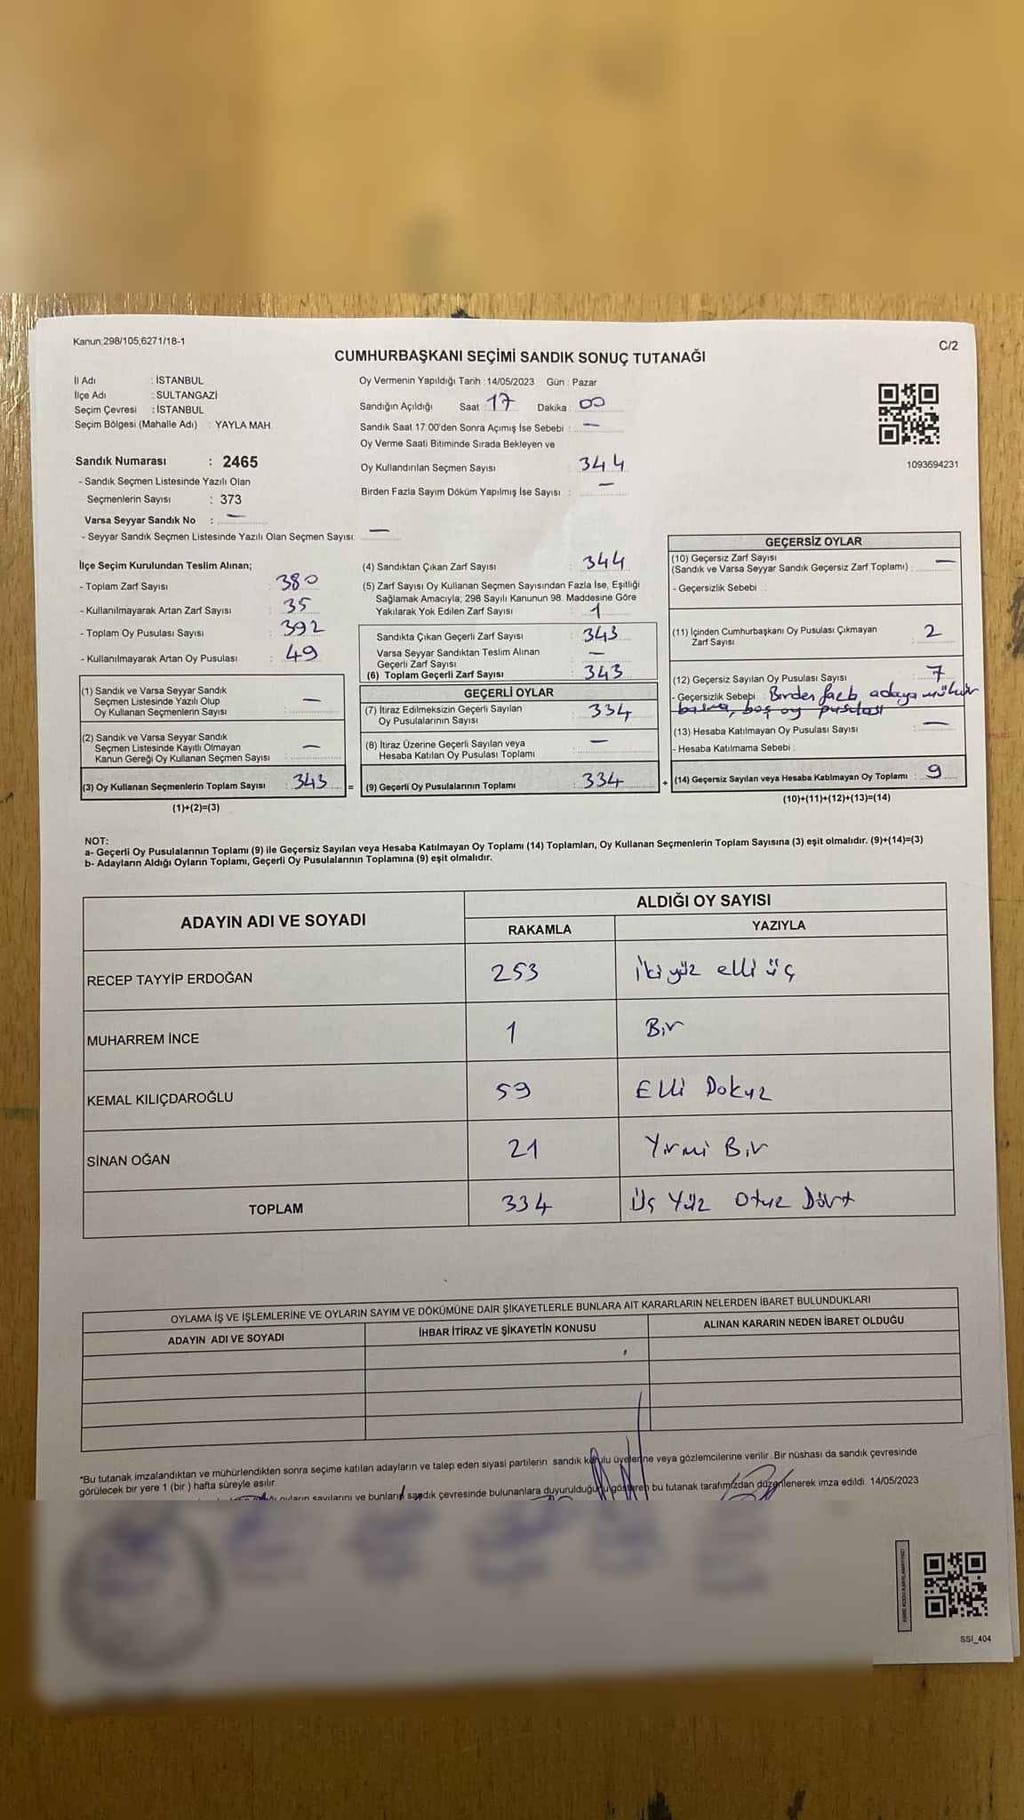 Kanun,298/105;6271/18-1
C/2
CUMHURBAŞKANI SEÇİMİ SANDIK SONUÇ TUTANAĞI
İl Adı : İSTANBUL
İlçe Adı : SULTANGAZİ
Seçim Çevresi : İSTANBUL
Seçim Bölgesi (Mahalle Adı) : YAYLA MAH.
Sandık Numarası : 2465
- Sandık Seçmen Listesinde Yazılı Olan
Seçmenlerin Sayısı : 373
Varsa Seyyar Sandık No : —
- Seyyar Sandık Seçmen Listesinde Yazılı Olan Seçmen Sayısı: —
Oy Vermenin Yapıldığı Tarih : 14/05/2023 Gün : Pazar
Sandığın Açıldığı Saat 17 Dakika : 00
Sandık Saat 17:00'den Sonra Açımış İse Sebebi : —
Oy Verme Saati Bitiminde Sırada Bekleyen ve
Oy Kullandırılan Seçmen Sayısı 344
Birden Fazla Sayım Döküm Yapılmış İse Sayısı : —
1093694231
İlçe Seçim Kurulundan Teslim Alınan;
- Toplam Zarf Sayısı : 380
- Kullanılmayarak Artan Zarf Sayısı : 35
- Toplam Oy Pusulası Sayısı : 392
- Kullanılmayarak Artan Oy Pusulası : 49
(1) Sandık ve Varsa Seyyar Sandık
Seçmen Listesinde Yazılı Olup
Oy Kullanan Seçmenlerin Sayısı : —
(2) Sandık ve Varsa Seyyar Sandık
Seçmen Listesinde Kayıtlı Olmayan
Kanun Gereği Oy Kullanan Seçmen Sayısı : —
(3) Oy Kullanan Seçmenlerin Toplam Sayısı : 343 =
(1)+(2)=(3)
(4) Sandıktan Çıkan Zarf Sayısı : 344
(5) Zarf Sayısı Oy Kullanan Seçmen Sayısından Fazla İse, Eşitliği
Sağlamak Amacıyla; 298 Sayılı Kanunun 98. Maddesine Göre
Yakılarak Yok Edilen Zarf Sayısı : 1
Sandıkta Çıkan Geçerli Zarf Sayısı : 343
Varsa Seyyar Sandıktan Teslim Alınan
Geçerli Zarf Sayısı : —
(6) Toplam Geçerli Zarf Sayısı : 343
GEÇERLİ OYLAR
(7) İtiraz Edilmeksizin Geçerli Sayılan
Oy Pusulalarının Sayısı : 334
(8) İtiraz Üzerine Geçerli Sayılan veya
Hesaba Katılan Oy Pusulası Toplamı : —
(9) Geçerli Oy Pusulalarının Toplamı : 334 +
GEÇERSİZ OYLAR
(10) Geçersiz Zarf Sayısı
(Sandık ve Varsa Seyyar Sandık Geçersiz Zarf Toplamı) : —
- Geçersizlik Sebebi :
(11) İçinden Cumhurbaşkanı Oy Pusulası Çıkmayan
Zarf Sayısı : 2
(12) Geçersiz Sayılan Oy Pusulası Sayısı : 7
- Geçersizlik Sebebi Birden fazla adaya mühür
basma, boş oy pusulası
(13) Hesaba Katılmayan Oy Pusulası Sayısı : —
- Hesaba Katılmama Sebebi :
(14) Geçersiz Sayılan veya Hesaba Katılmayan Oy Toplamı : 9
(10)+(11)+(12)+(13)=(14)
NOT:
a- Geçerli Oy Pusulalarının Toplamı (9) ile Geçersiz Sayılan veya Hesaba Katılmayan Oy Toplamı (14) Toplamları, Oy Kullanan Seçmenlerin Toplam Sayısına (3) eşit olmalıdır. (9)+(14)=(3)
b- Adayların Aldığı Oyların Toplamı, Geçerli Oy Pusulalarının Toplamına (9) eşit olmalıdır.
ADAYIN ADI VE SOYADI
ALDIĞI OY SAYISI
RAKAMLA YAZIYLA
RECEP TAYYİP ERDOĞAN 253 İki yüz elli üç
MUHARREM İNCE 1 Bir
KEMAL KILIÇDAROĞLU 59 Elli Dokuz
SİNAN OĞAN 21 Yirmi Bir
TOPLAM 334 Üç Yüz Otuz Dört
OYLAMA İŞ VE İŞLEMLERİNE VE OYLARIN SAYIM VE DÖKÜMÜNE DAİR ŞİKAYETLERLE BUNLARA AİT KARARLARIN NELERDEN İBARET BULUNDUKLARI
ADAYIN ADI VE SOYADI İHBAR İTİRAZ VE ŞİKAYETİN KONUSU ALINAN KARARIN NEDEN İBARET OLDUĞU
*Bu tutanak imzalandıktan ve mühürlendikten sonra seçime katılan adayların ve talep eden siyasi partilerin sandık kurulu üyelerine veya gözlemcilerine verilir. Bir nüshası da sandık çevresinde
görülecek bir yere 1 (bir ) hafta süreyle asılır.
oyların sayılarını ve bunların sandık çevresinde bulunanlara duyurulduğunu gösteren bu tutanak tarafımızdan düzenlenerek imza edildi. 14/05/2023
SSİ_404